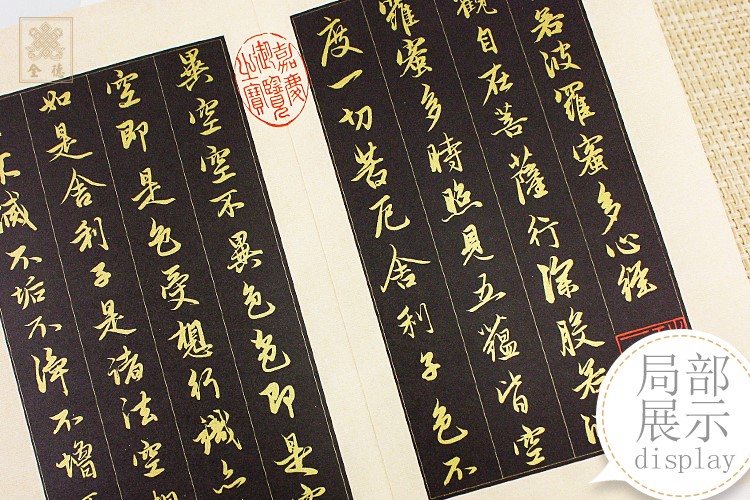 若波羅蜜多心經
觀自在菩薩行深般若波
羅蜜多時照見五蘊皆空
度一切苦厄舍利子色不
嘉慶
御覽
之寶
異空空不異色色即是空
空即是色受想行識亦
如是舍利子是諸法空相
不滅不垢不淨不增不
全德
局部
展示
display